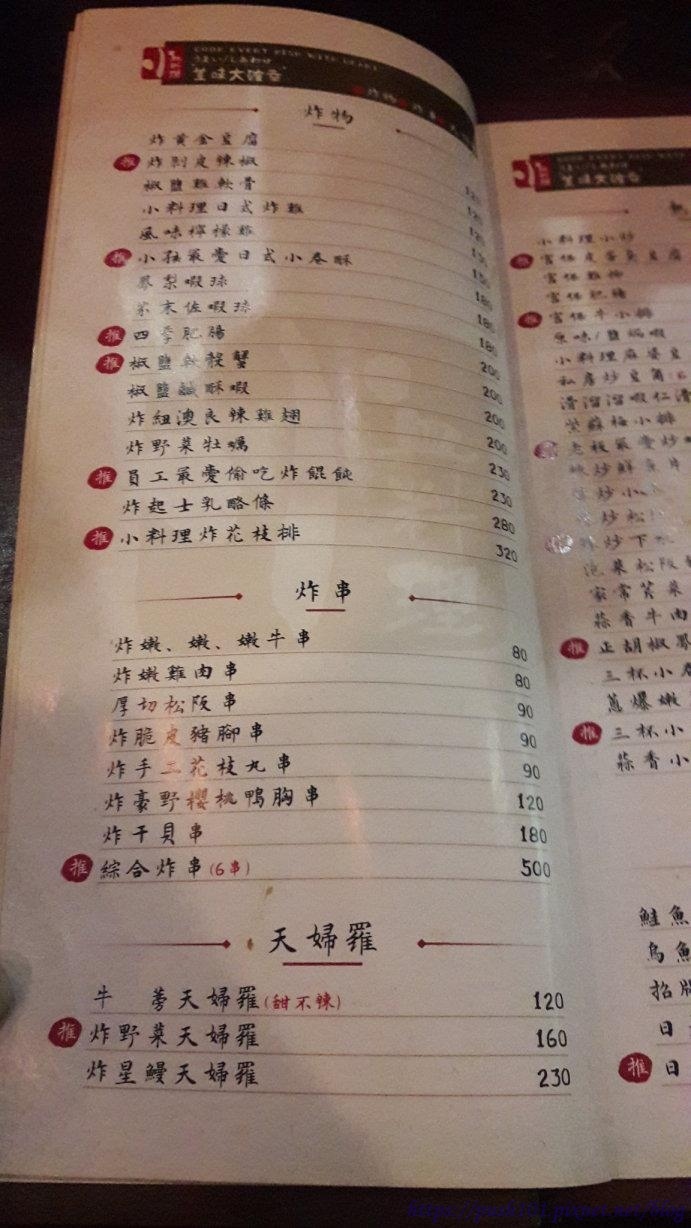 COOK EVERY DISH WITH HEART
美味大確幸
炸物
炸黃金豆腐
推 炸剝皮辣椒 120
椒鹽雞軟骨 120
小料理日式炸雞 120
風味檸檬雞 130
推 小孩最愛日式小春酥 150
鳳梨蝦球 180
芥末佐蝦球 180
推 四季肥腸 180
推 椒鹽軟殼蟹 200
椒鹽鹹酥蝦 200
炸紐澳良辣雞翅 200
炸野菜牡蠣 200
推 員工最愛偷吃炸餛飩 230
炸起士乳酪條 230
推 小料理炸花枝排 280
320
炸串
炸嫩、嫩、嫩牛串 80
炸嫩雞肉串 80
厚切松阪串 90
炸脆皮豬腳串 90
炸手工花枝丸串 90
炸豪野櫻桃鴨胸串 120
炸干貝串 180
推 綜合炸串(6串) 500
天婦羅
牛 蒡天婦羅(甜不辣) 120
推 炸野菜天婦羅 160
炸星鰻天婦羅 230
美味大確幸
小料理小炒
推 宮保皮蛋臭豆腐
宮保雞柳
宮保肥腸
推 宮保牛小排
原味/鹽焗蝦
小料理麻婆豆
私房炒豆角
滑溜溜蝦仁滑
紫蘇梅小排
老板最愛炒
炒鮮魚片
炒小
炒松
炒下水
泡菜松阪
家常苦菜
蒜香牛肉
推 正胡椒鳳
三杯小卷
蔥爆嫩
推 三杯小
蒜香小
鮭魚
烏魚
招牌
日
推 日